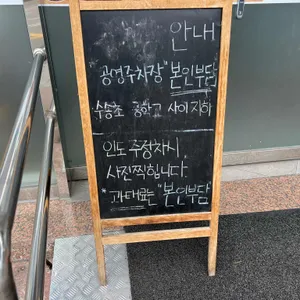 안내
공영주차장 "본인부담
수송초 중학교 사이 지하
인도 주정차시,
사진찍힙니다.
* 과태료는 "본인부담